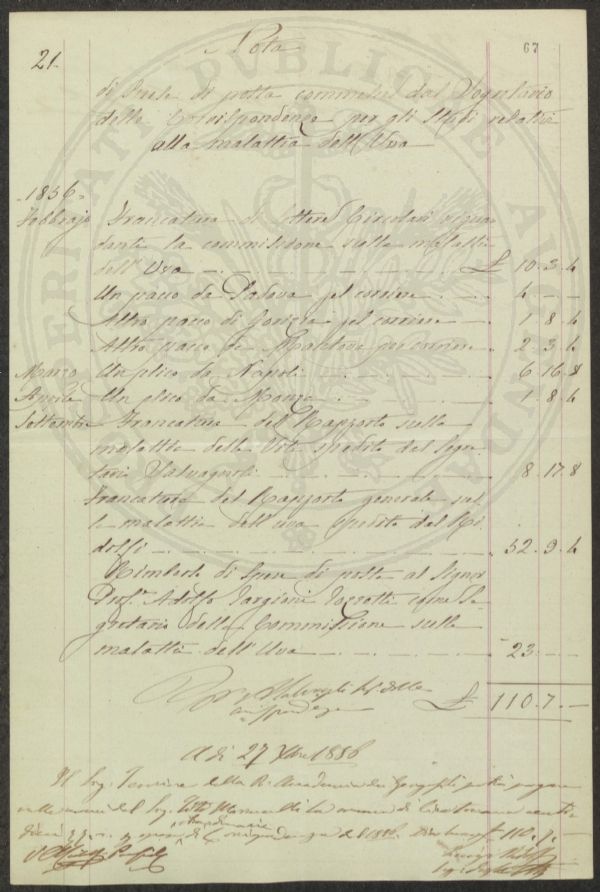 21.
67
Nota
di spese di posta commesse dal Segretario
delle Corrispondenze per gli Studi relativi
alla malattia dell'Uva
1856
Febbrajo Francatura di lettere Circolari riguar
dante la commissione sulla malattia
dell'Uva £ 10. 3. 4
Un pacco da Padova pel corriere 4. — —
Altro pacco di Gorizia pel corriere 1. 8. 4
Altro pacco da Mantova per corriere 2. 3. 4
Marzo Un plico da Napoli 6. 16. 8
Aprile Un plico da Monza 1. 8. 4
Settembre Francatura del Rapporto sulla
malattia della Vite spedito dal Segre-
tario Salvagnoli 8. 17. 8
Francatura del Rapporto generale sul
la malattia dell'uva spedito dal Ri-
dolfi 52. 9. 4
Rimborso di spese di posta al Signor
Prof. Adolfo Targioni Tozzetti come Se
gretario della Commissione sulla
malattia dell'Uva 23. —
delle
corrispondenze
£ 110. 7. —
A dì 27 Xbre 1856
Il Sig. Tesoriere della R. Accademia dei Georgofili potrà pagare
nelle mani del Sig. la somma di Lire
straordinarie
di Corrispondenza del 1856. 110. 7. —